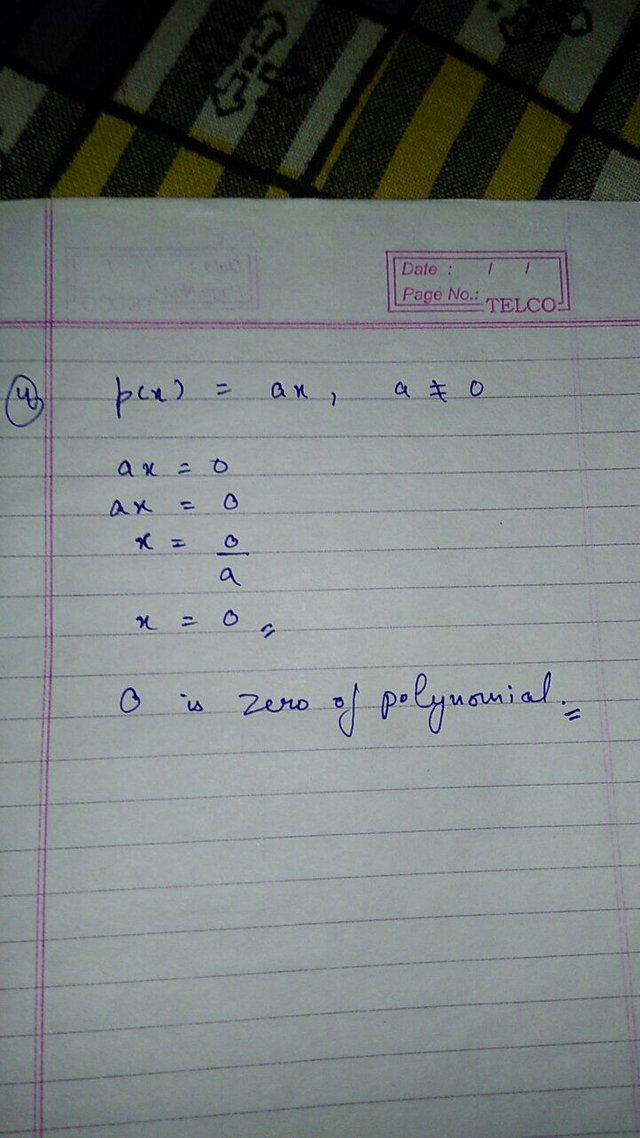 Date : / /
Page No.:
TELCO
4 p(x) = ax, a ≠ 0
ax = 0
ax = 0
x = 0/a
x = 0
0 is zero of polynomial.